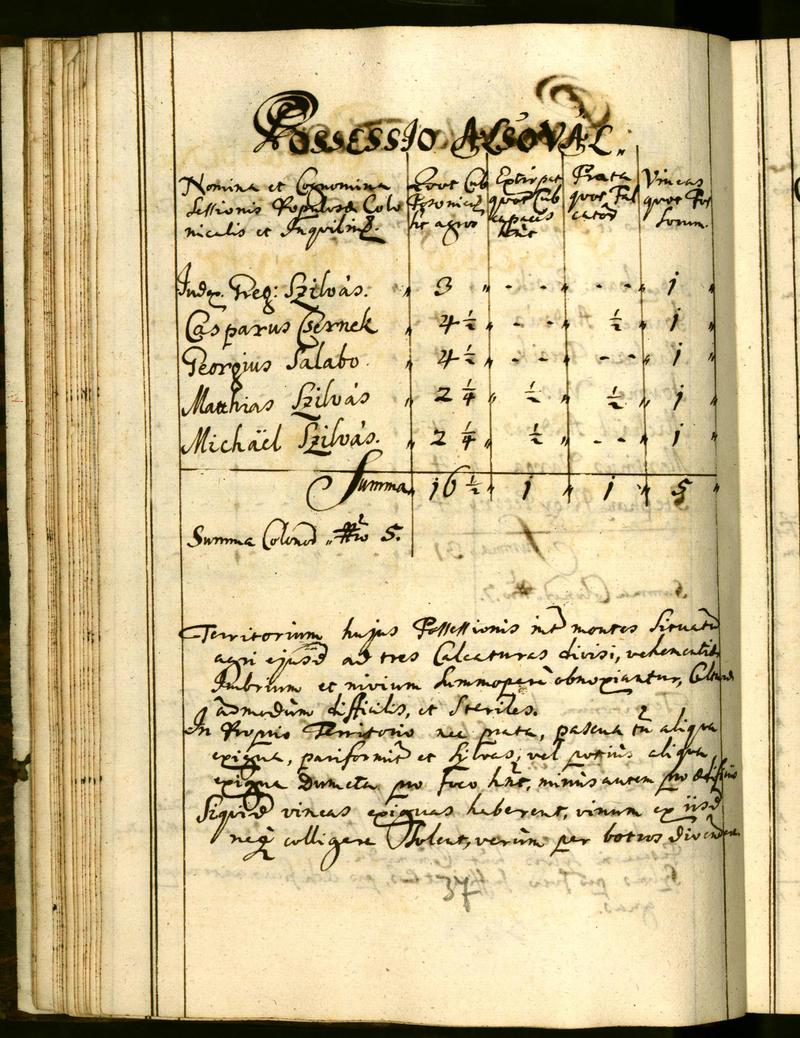 Possessio Alsovál.
Nomina et Cognomina
Sessionis Populosæ Colo
nicalis et Inquilin:
Quot Cub
Posonien
sit agros
Extirpat
quot Cub
capaces
Hnt
Prata
quot Fal
catorū
Vineas
quot Fos
sorum.
Judex Greg: Szilvás. " 3 " - - " - - " 1 "
Casparus Csernek " 4 1/2 " - - " 1/2 " 1 "
Georgius Salabo " 4 1/2 " - - " - - " 1 "
Matthias Szilvás " 2 1/4 " 1/2 " 1/2 " 1 "
Michäel Szilvás. " 2 1/4 " 1/2 " - - " 1 "
Summa " 16 1/2 " 1 " 1 " 5 "
Summa Colonor 5.
Territorium hujus Possessionis int montes Situat
agri ejusd ad tres Calcaturas divisi, vehementib
Imbrium et nivium summopere obnoxiantur,
admodum difficilis, et Steriles.
In Proprio Territorio nec prata, pascua tn aliqua
exigua, pariformit et Silvas, vel potius aliqua
exigua Dumeta pro foco hnt, minus autem pro ædificiis
Siquid vineas exiguas haberent, vinum ex iisd
neq colligere Solent, verum per botros divendere
37